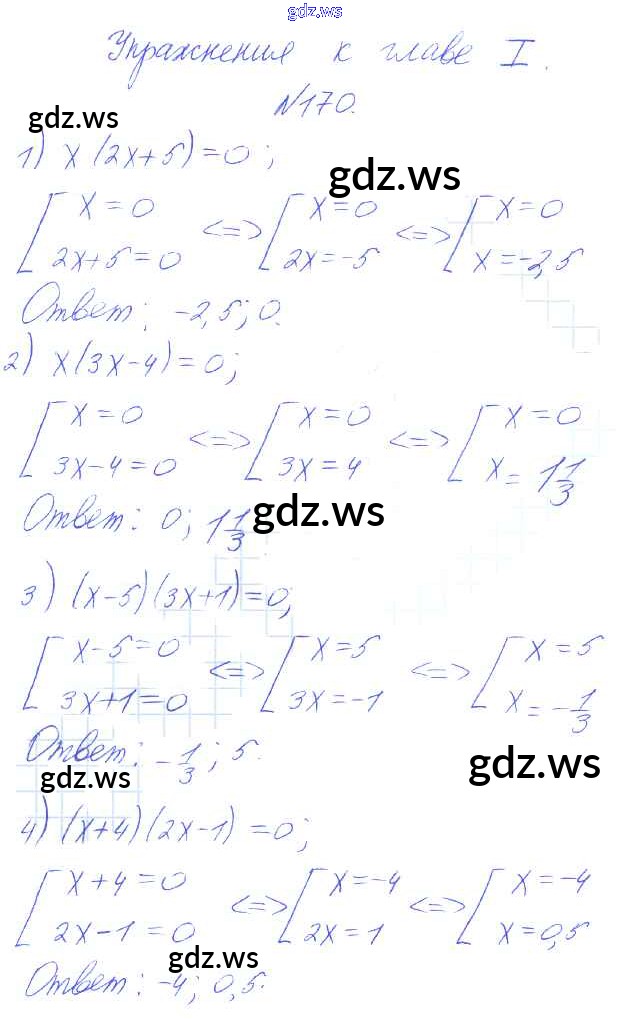 gdz.ws
Упражнения к главе I.
№170.
gdz.ws
1) x(2x+5)=0;
gdz.ws
[x=0 <=> [x=0 <=> [x=0
2x+5=0 2x=-5 x=-2,5
Ответ: -2,5; 0.
2) x(3x-4)=0;
[x=0 <=> [x=0 <=> [x=0
3x-4=0 3x=4 x=1 1/3
Ответ: 0; 1 1/3
gdz.ws
3) (x-5)(3x+1)=0;
[x-5=0 <=> [x=5 <=> [x=5
3x+1=0 3x=-1 x=-1/3
Ответ: -1/3; 5.
gdz.ws
gdz.ws
4) (x+4)(2x-1)=0;
[x+4=0 <=> [x=-4 <=> [x=-4
2x-1=0 2x=1 x=0,5
gdz.ws
Ответ: -4; 0,5.